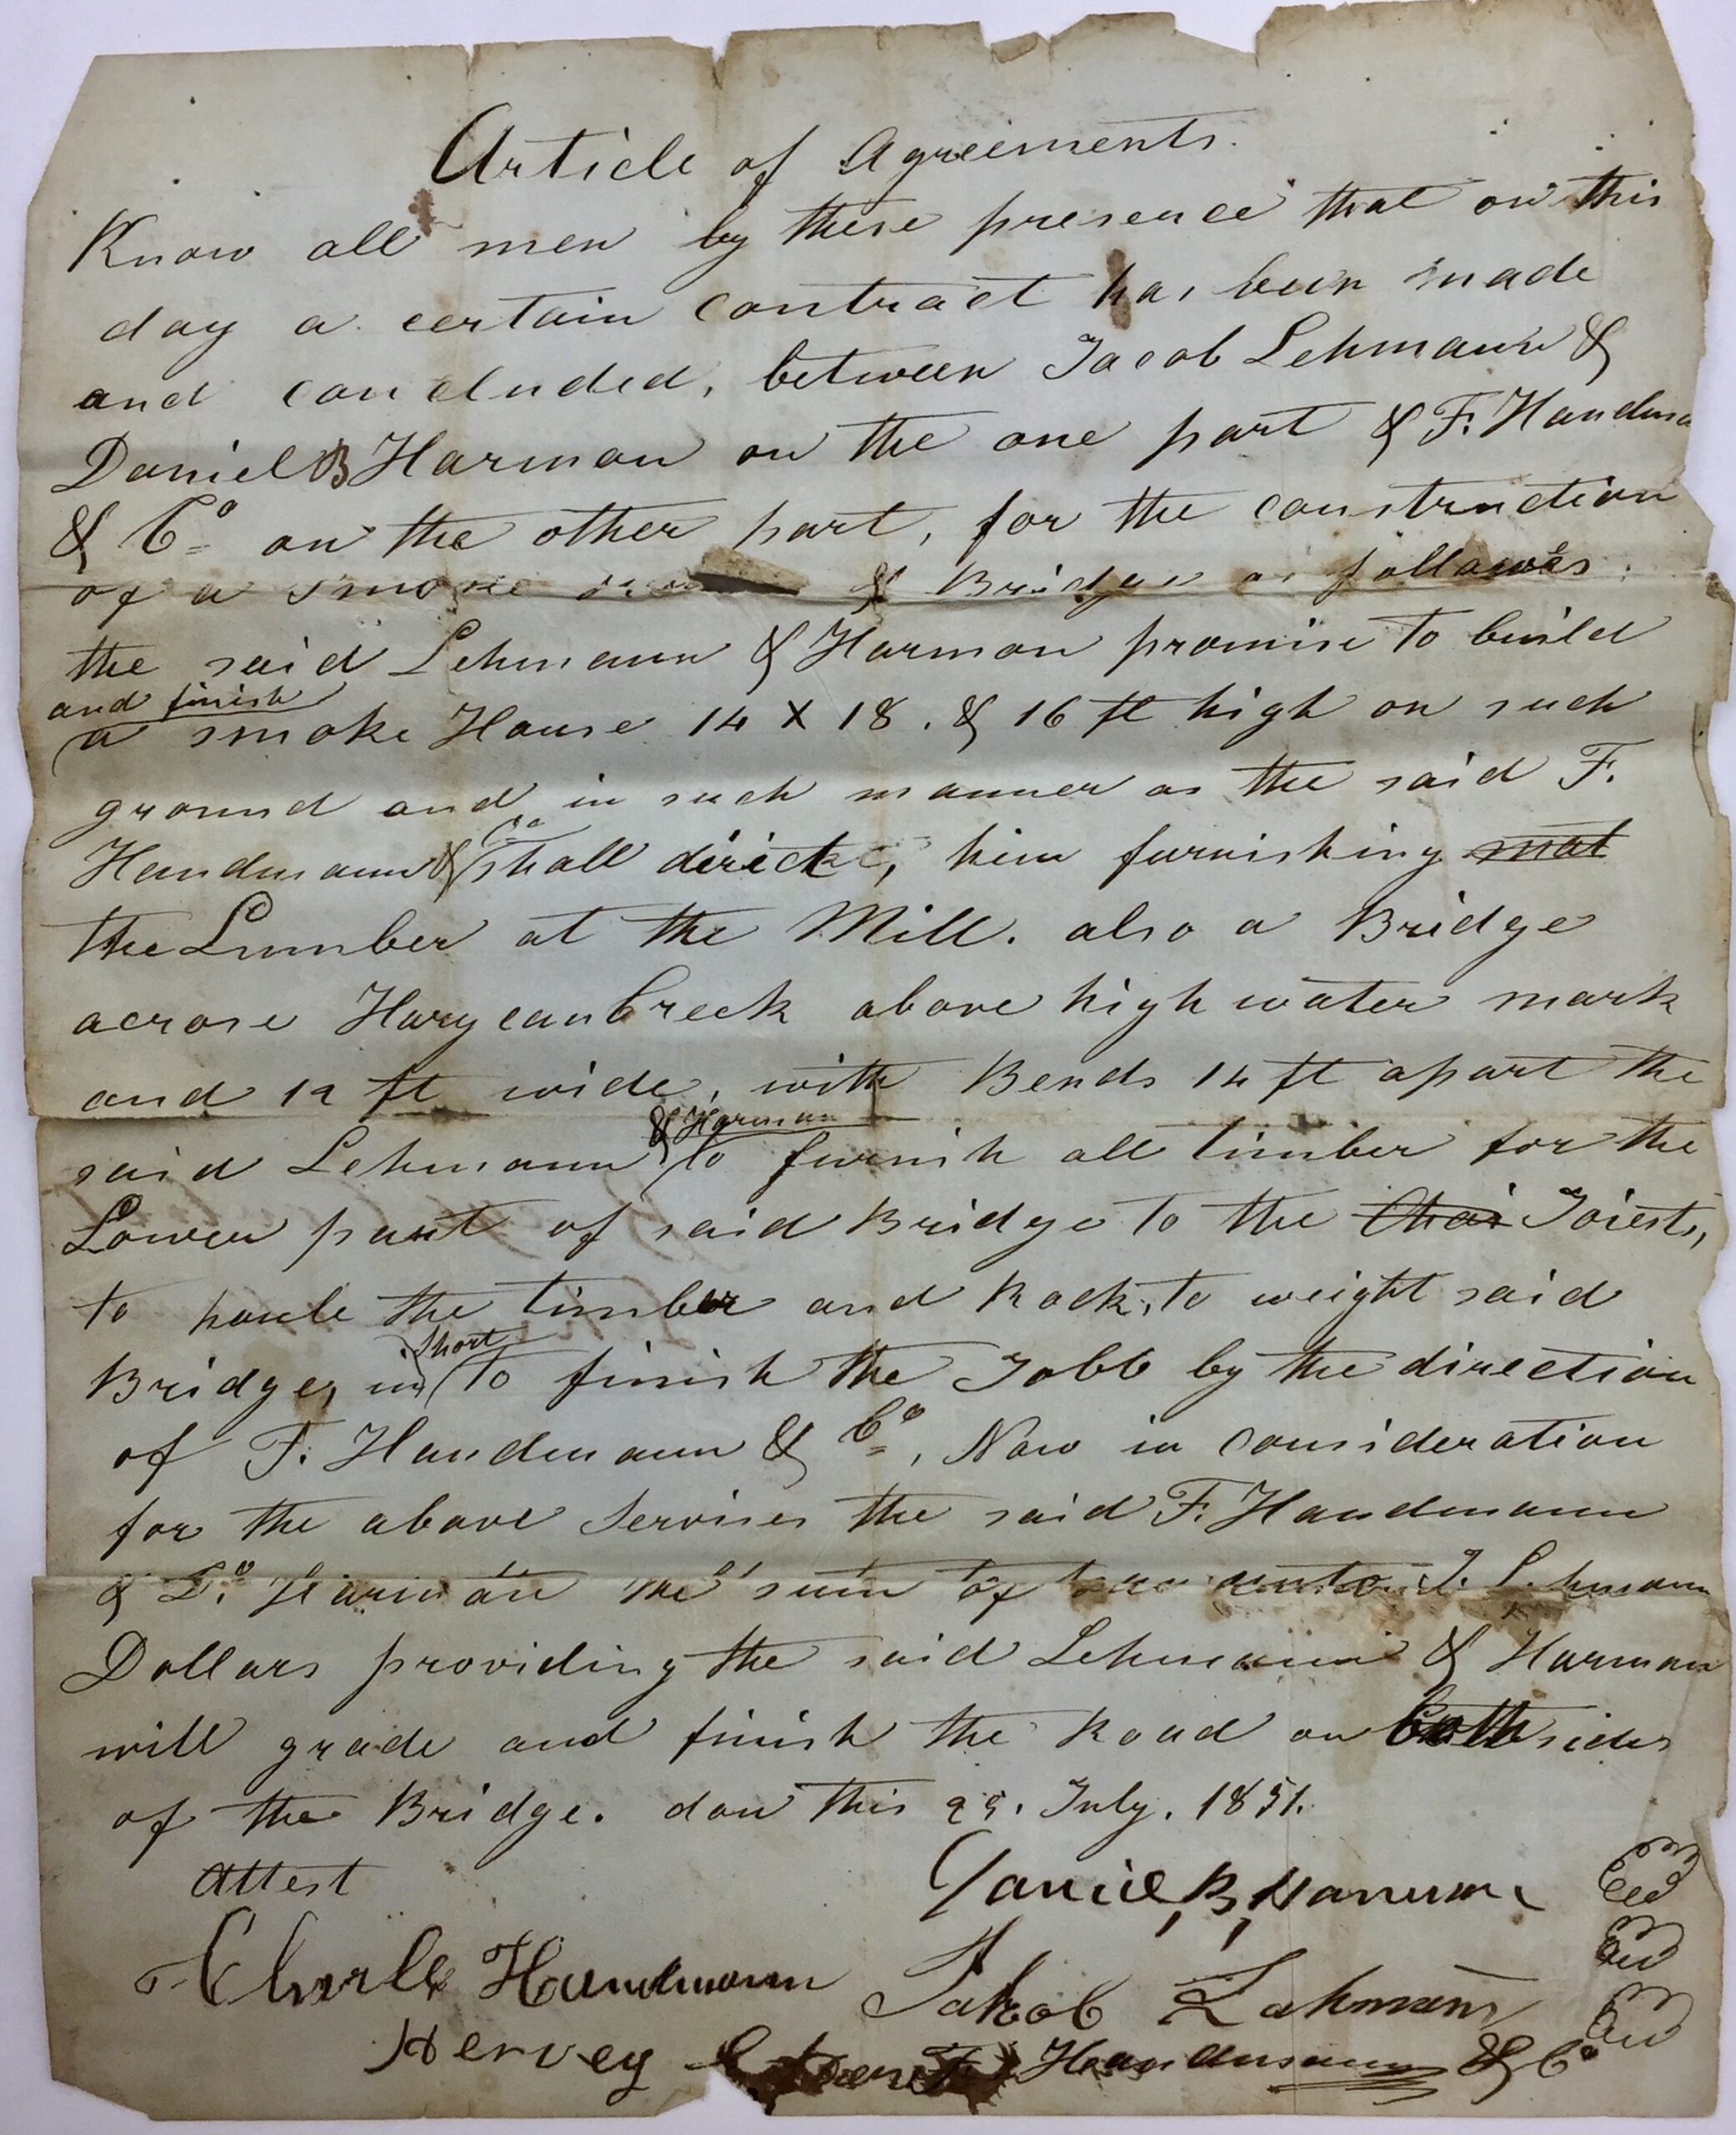 Article of Agreements.
Know all men by these presence that on this
day a certain contract has been made
and concluded, between Jacob Lehmann &
Daniel B Harman on the one part & F. Handma
& Co on the other part, for the construction
of a smoke & Bridge as follows.
the said Lehmann & Harman promise to build
and finish
a smoke House 14 X 18. & 16 ft high on such
ground and in such manner as the said F.
Handmann & Co shall direct, him furnishing mat
the Lumber at the Mill. also a Bridge
across Harycan Creek above high water mark
and 12 ft wide, with Bends 14 ft apart the
& Harman
said Lehmann to furnish all timber for the
Lower part of said Bridge to the Joists,
to houle the timber and Rock, to weight said
short
Bridge, in to finish the Jobb by the direction
of F. Handmann & Co, Now in consideration
for the above Servises the said F. Handmann
& the sum of Lehmann
Dollars providing the said Lehmann & Harman
will grade and finish the Road on Both sides
of the Bridge. don this July. 1851.
Attest
Daniel, B, Harman
Charle Handmann Jakob Lahmann
Hervey F Handmann & Co